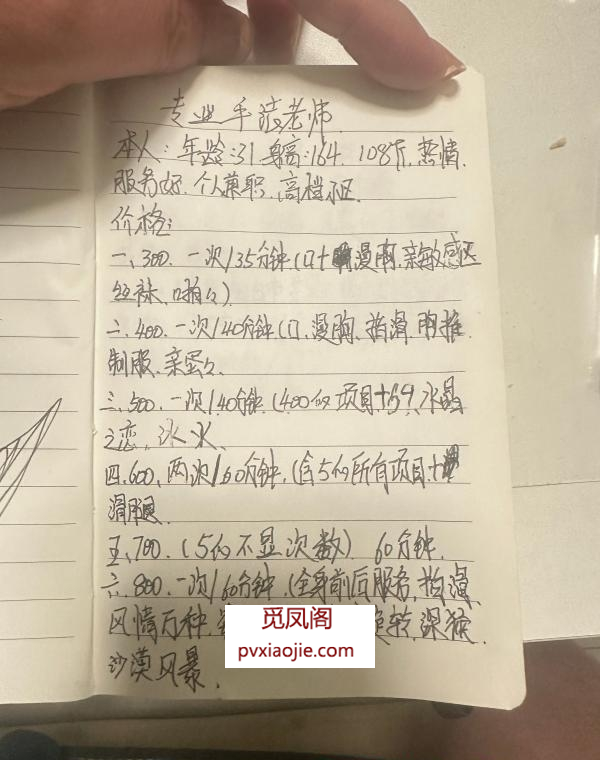 专业手渍老师
本人:年龄:31 身高:164. 108斤,热情.
服务好.个人兼职、高档小区.
价格:
一、300.一次/35分钟(口+漫胸,亲敏感区
丝袜、啪々)
二、400.一次/40分钟(口、漫胸、指滑、胸推.
制服、亲蛋々
三、500.一次/40分钟(400的项目+69、水晶
之恋、冰火、
四.600、两次/60分钟,(含5的所有项目+
滑腿.
五、700.(5的不显次数) 60分钟.
六、800.一次/60分钟(全身前后服务,指滑
风情万种 旋转,深猴.
沙漠风暴.
觅凤阁
pvxiaojie.com